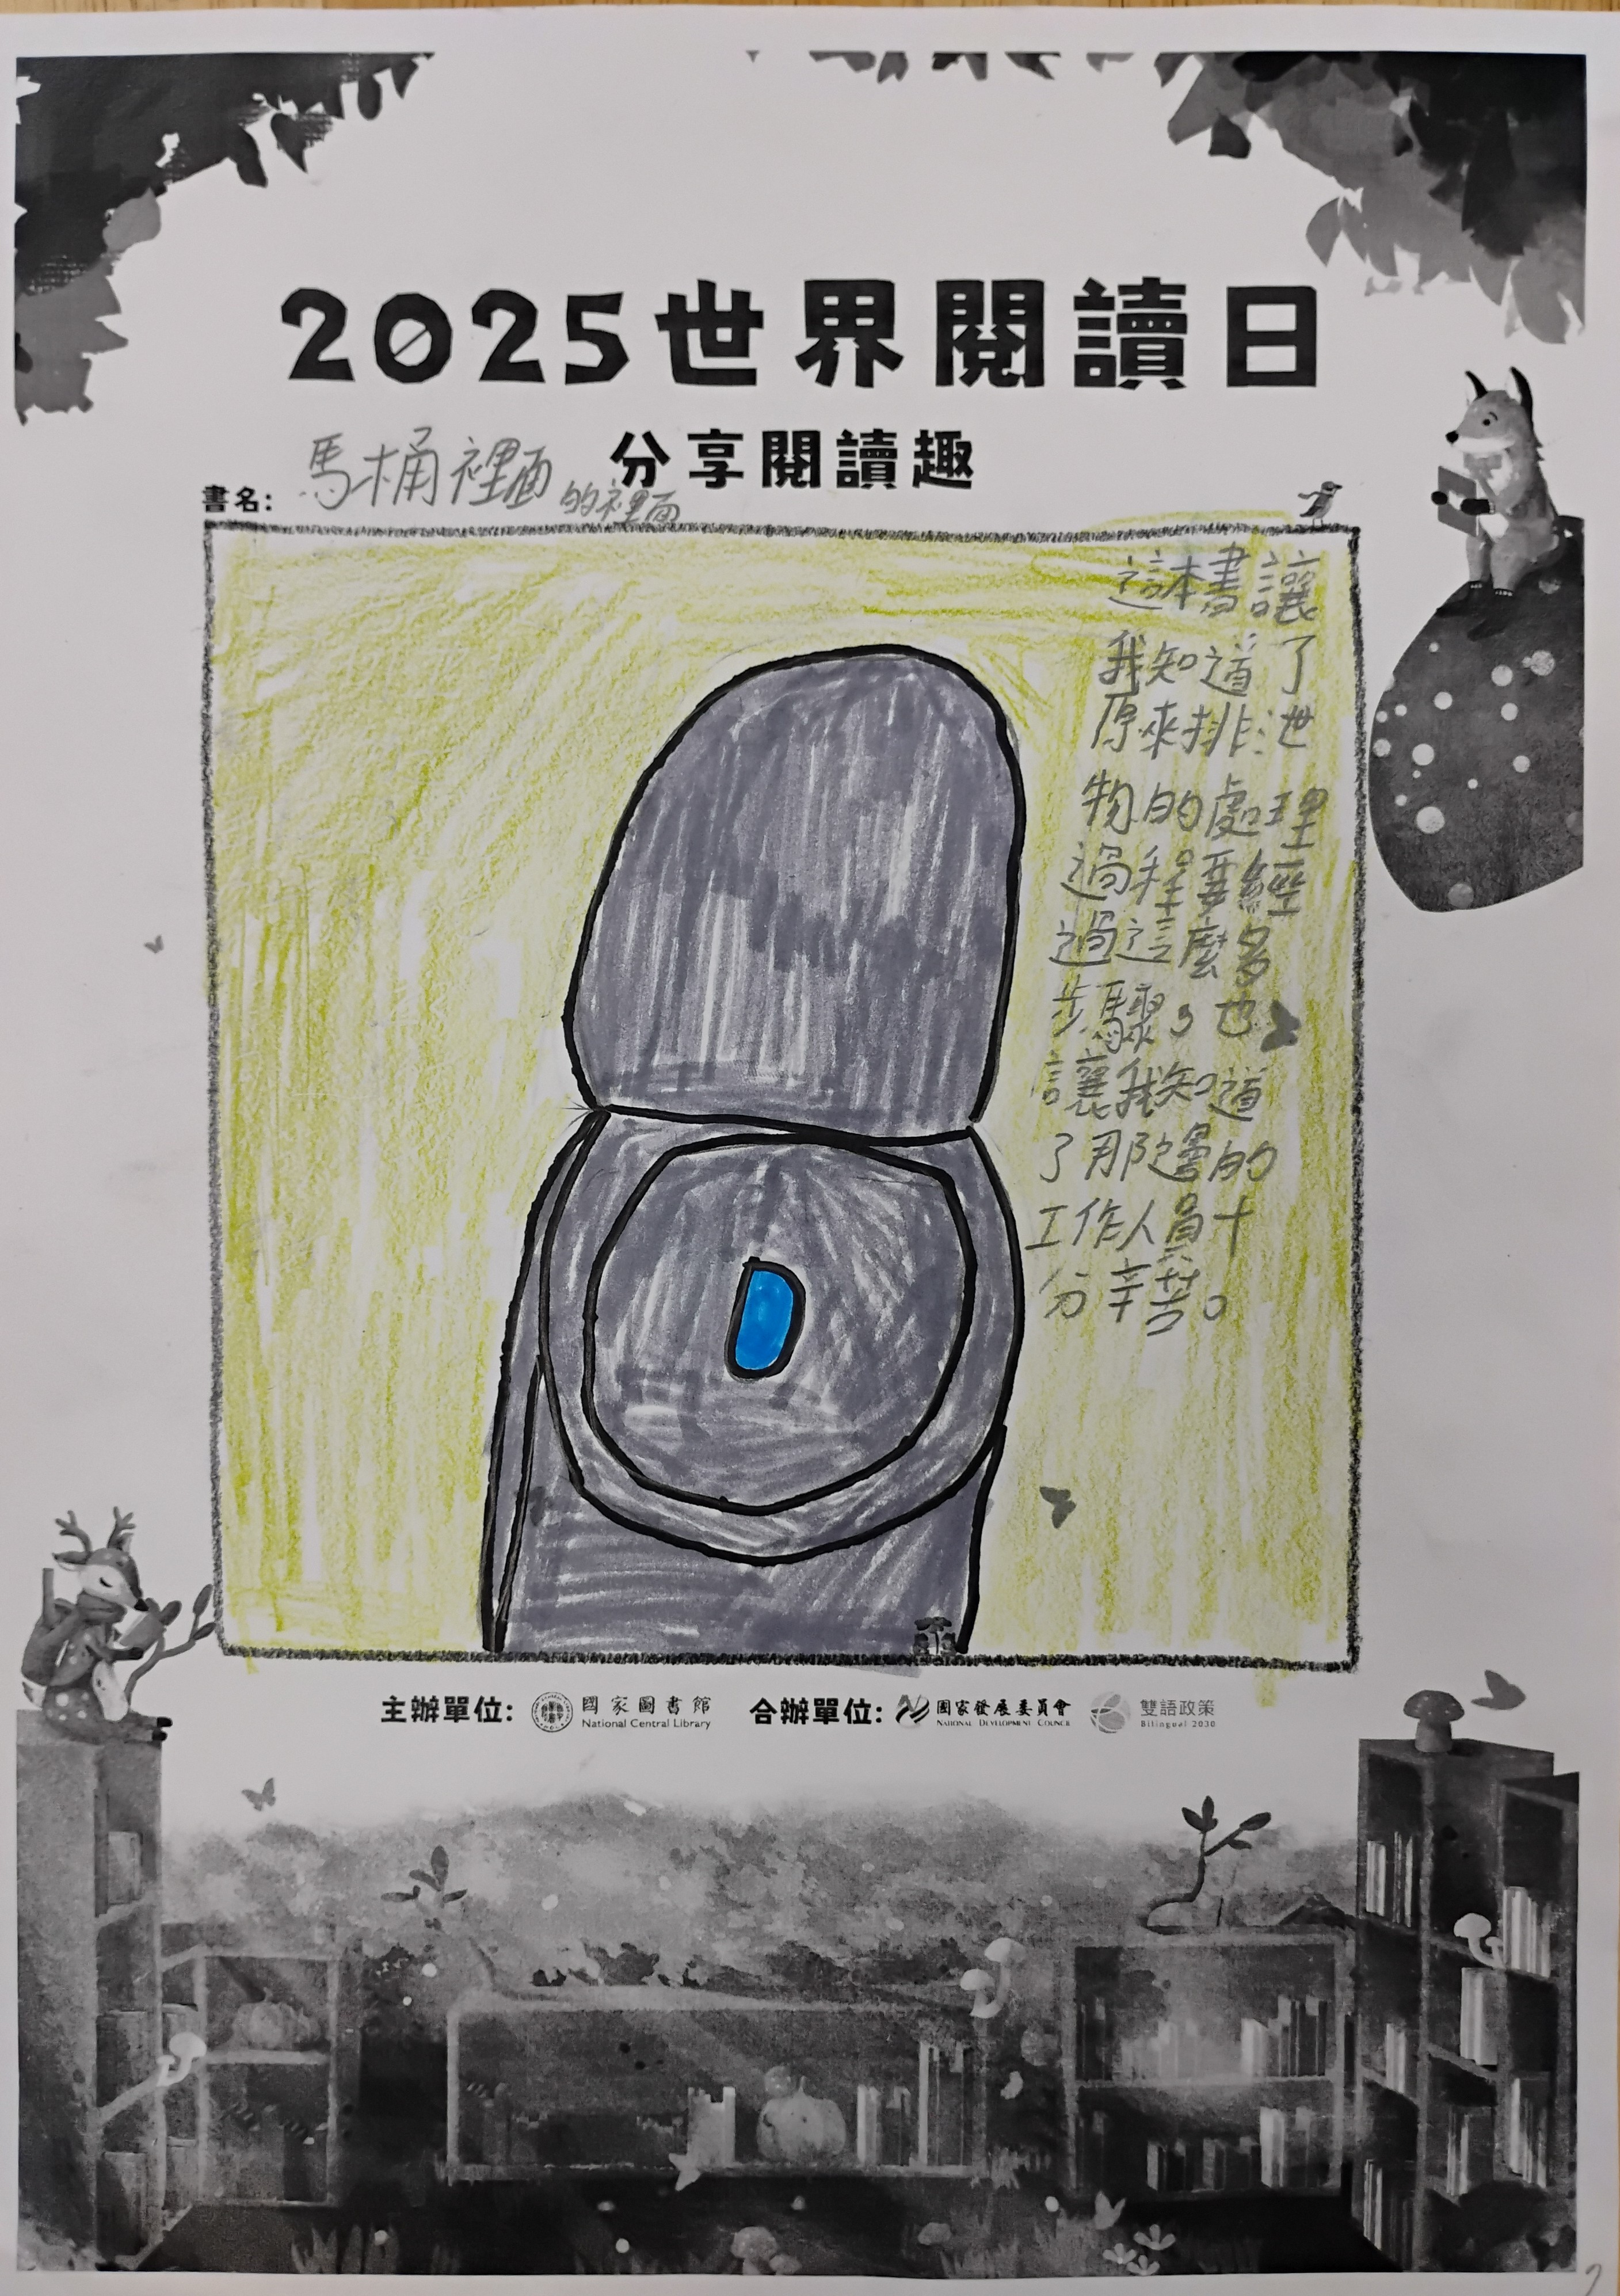 2025世界閱讀日
分享閱讀趣
書名：馬桶裡面的裡面
這本書讓
我知道了
原來排泄
物的處理
過程要經
過這麼多
步驟，也
讓我知道
了那邊的
工作人員十
分辛苦。
主辦單位： 國家圖書館 National Central Library 合辦單位： 國家發展委員會 NATIONAL DEVELOPMENT COUNCIL 雙語政策 Bilingual 2030